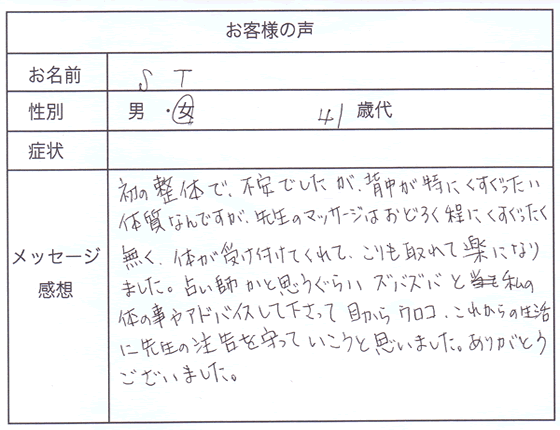 お客様の声
お名前 S T
性別 男・女 41歳代
症状
メッセージ
感想
初の整体で、不安でしたが、背中が特にくすぐったい
体質なんですが、先生のマッサージはおどろく程にくすぐったく
無く、体が受け付けてくれて、こりも取れて楽になり
ました。占い師かと思うぐらいズバズバと私の
体の事やアドバイスして下さって目からウロコ、これからの生活
に先生の注告を守っていこうと思いました。ありがとう
ございました。